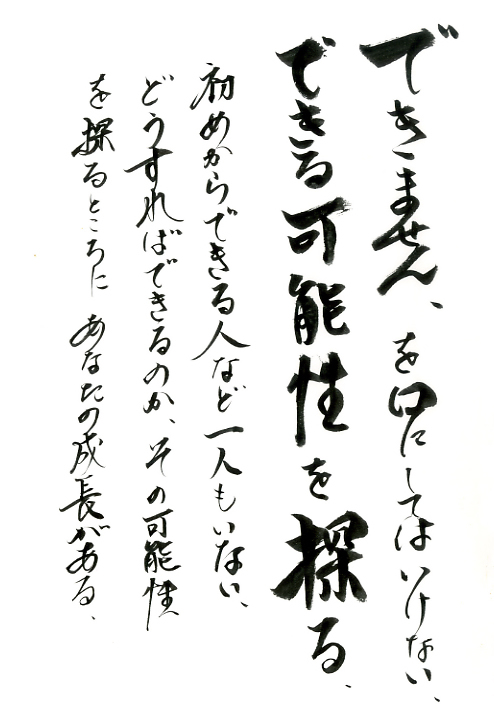 できません、を口にしてはいけない、
できる可能性を探る、
初めからできる人など一人もいない、
どうすればできるのか、その可能性
を探るところに あなたの成長がある、